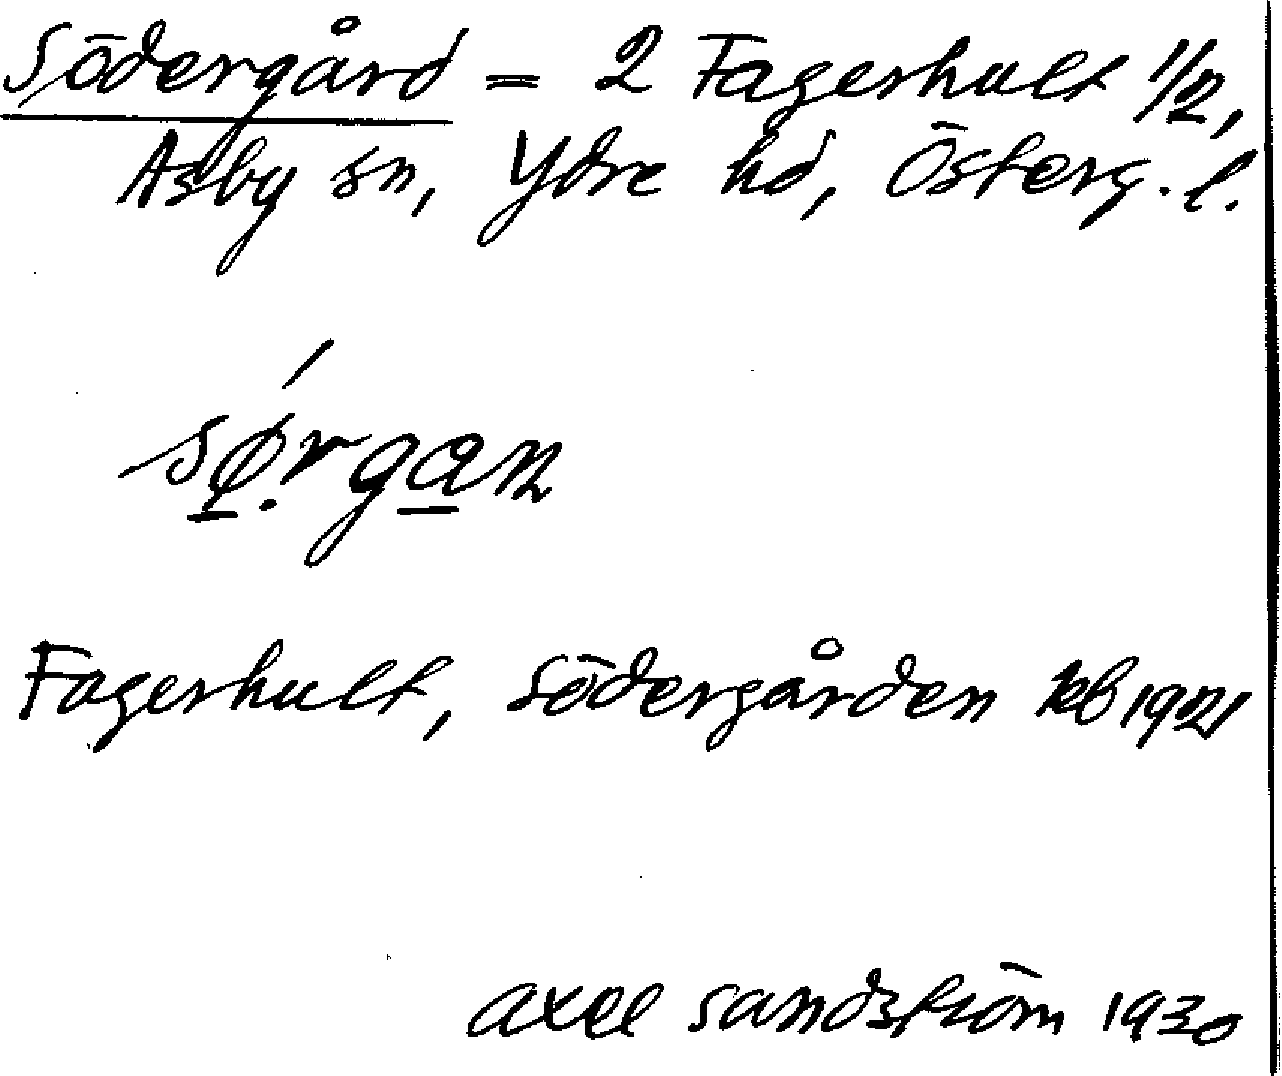 Södergård = 2 Fagerhult 1/2,
Asby sn, Ydre hd, Österg. l.
sǿ̱.rga̱n
Fagerhult, Södergården jeb 1921
Axel Sandström 1930